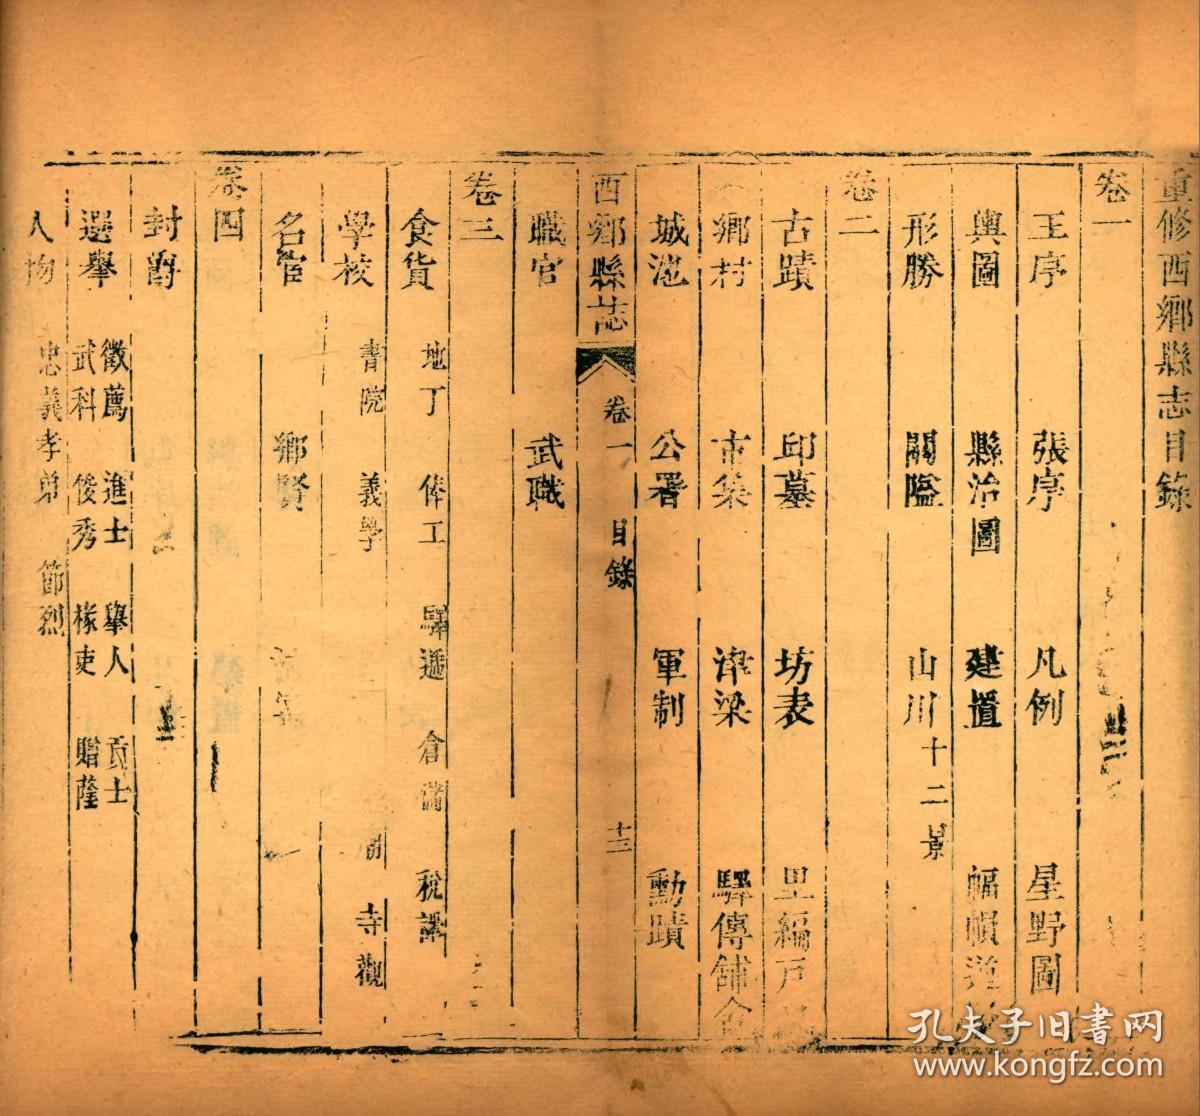 重修西鄉縣志目錄
卷一
王序 張序 凡例 星野圖
輿圖 縣治圖 建置 幅幀道
形勝 關隘 山川 十二景
卷二
古蹟 邱墓 坊表 里編戶
鄉村 市集 津梁 驛傳舖舍
城池 公署 軍制 勳蹟
西鄉縣誌 卷一 目錄 十三
職官 武職
卷三
食貨 地丁 俸工 驛遞 倉儲 稅課
學校 書院 義學 寺觀
名宦 鄉賢
卷四
封爵
選舉 徵薦 進士 舉人 貢士
武科 俊秀 椽吏 贈蔭
人物 忠義孝弟 節烈
孔夫子旧书网
www.kongfz.com